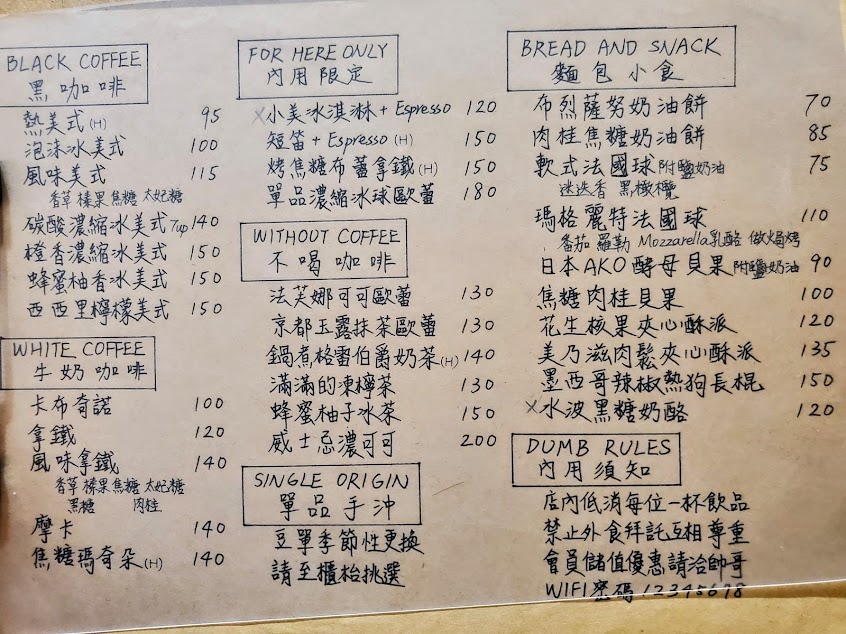 BLACK COFFEE
黑咖啡
熱美式(H) 95
泡沫冰美式 100
風味美式 115
香草 榛果 焦糖 太妃糖
碳酸濃縮冰美式 7up 140
橙香濃縮冰美式 150
蜂蜜柚香冰美式 150
西西里檸檬美式 150
WHITE COFFEE
牛奶咖啡
卡布奇諾 100
拿鐵 120
風味拿鐵 140
香草 榛果 焦糖 太妃糖
黑糖 肉桂
摩卡 140
焦糖瑪奇朵(H) 140
FOR HERE ONLY
內用限定
x小美冰淇淋+Espresso 120
短笛+Espresso (H) 150
烤焦糖布蕾拿鐵(H) 150
單品濃縮冰球歐蕾 180
WITHOUT COFFEE
不喝咖啡
法芙娜可可歐蕾 130
京都玉露抹茶歐蕾 130
鍋煮格雷伯爵奶茶(H) 140
滿滿的凍檸茶 130
蜂蜜柚子冰茶 150
威士忌濃可可 200
SINGLE ORIGIN
單品手沖
豆單季節性更換
請至櫃枱挑選
BREAD AND SNACK
麵包小食
布烈薩努奶油餅 70
肉桂焦糖奶油餅 85
軟式法國球 附鹽奶油 75
迷迭香 黑橄欖
瑪格麗特法國球 110
番茄 羅勒 Mozzarella乳酪 做焗烤
日本AKO酵母貝果 附鹽奶油 90
焦糖肉桂貝果 100
花生核果夾心酥派 120
美乃滋肉鬆夾心酥派 135
墨西哥辣椒熱狗長棍 150
x水波黑糖奶酪 120
DUMB RULES
內用須知
店內低消每位一杯飲品
禁止外食拜託互相尊重
會員儲值優惠請洽帥哥
WIFI密碼12345678